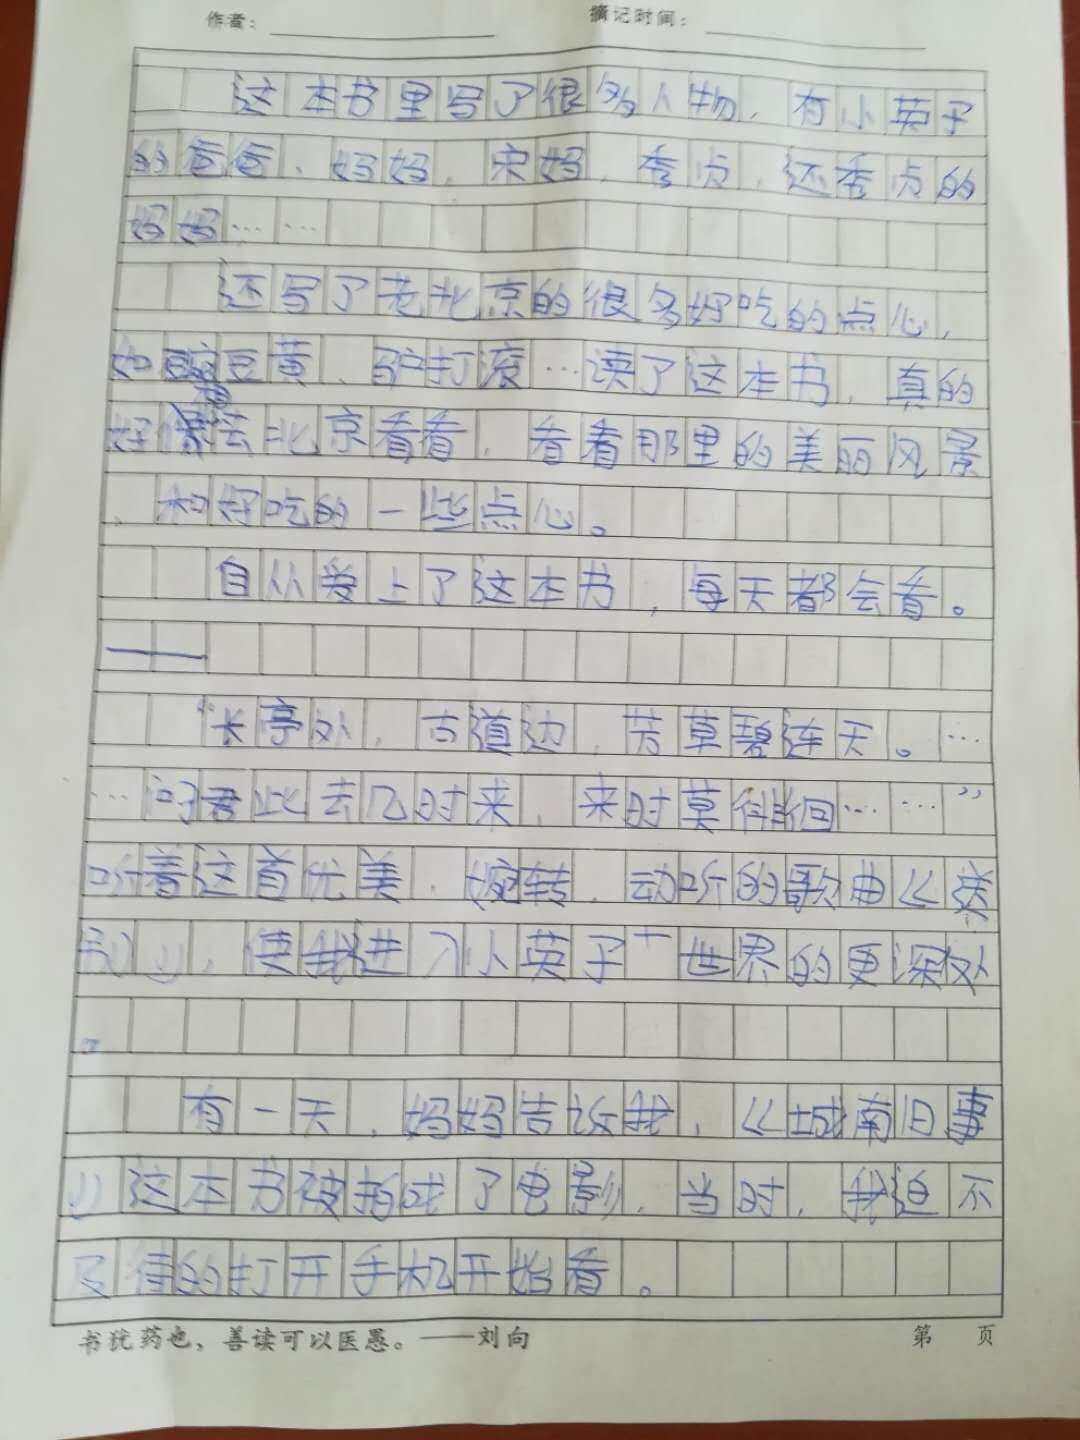 作者：
摘记时间：
这本书里写了很多人物，有小英子
的爸爸、妈妈、宋妈、秀贞、还秀贞的
妈妈……
还写了老北京的很多好吃的点心，
如豌豆黄、驴打滚…读了这本书，真的
好想去北京看看，看看那里的美丽风景
、和好吃的一些点心。
自从爱上了这本书，每天都会看。
——
“长亭外，古道边，芳草碧连天。…
…问君此去几时来，来时莫徘徊……”
听着这首优美、婉转、动听的歌曲《送
别》，使我进入小英子 世界的更深处
。
有一天，妈妈告诉我，《城南旧事
》这本书被拍成了电影，当时，我迫不
及待的打开手机开始看。
书犹药也，善读可以医愚。——刘向
第 页